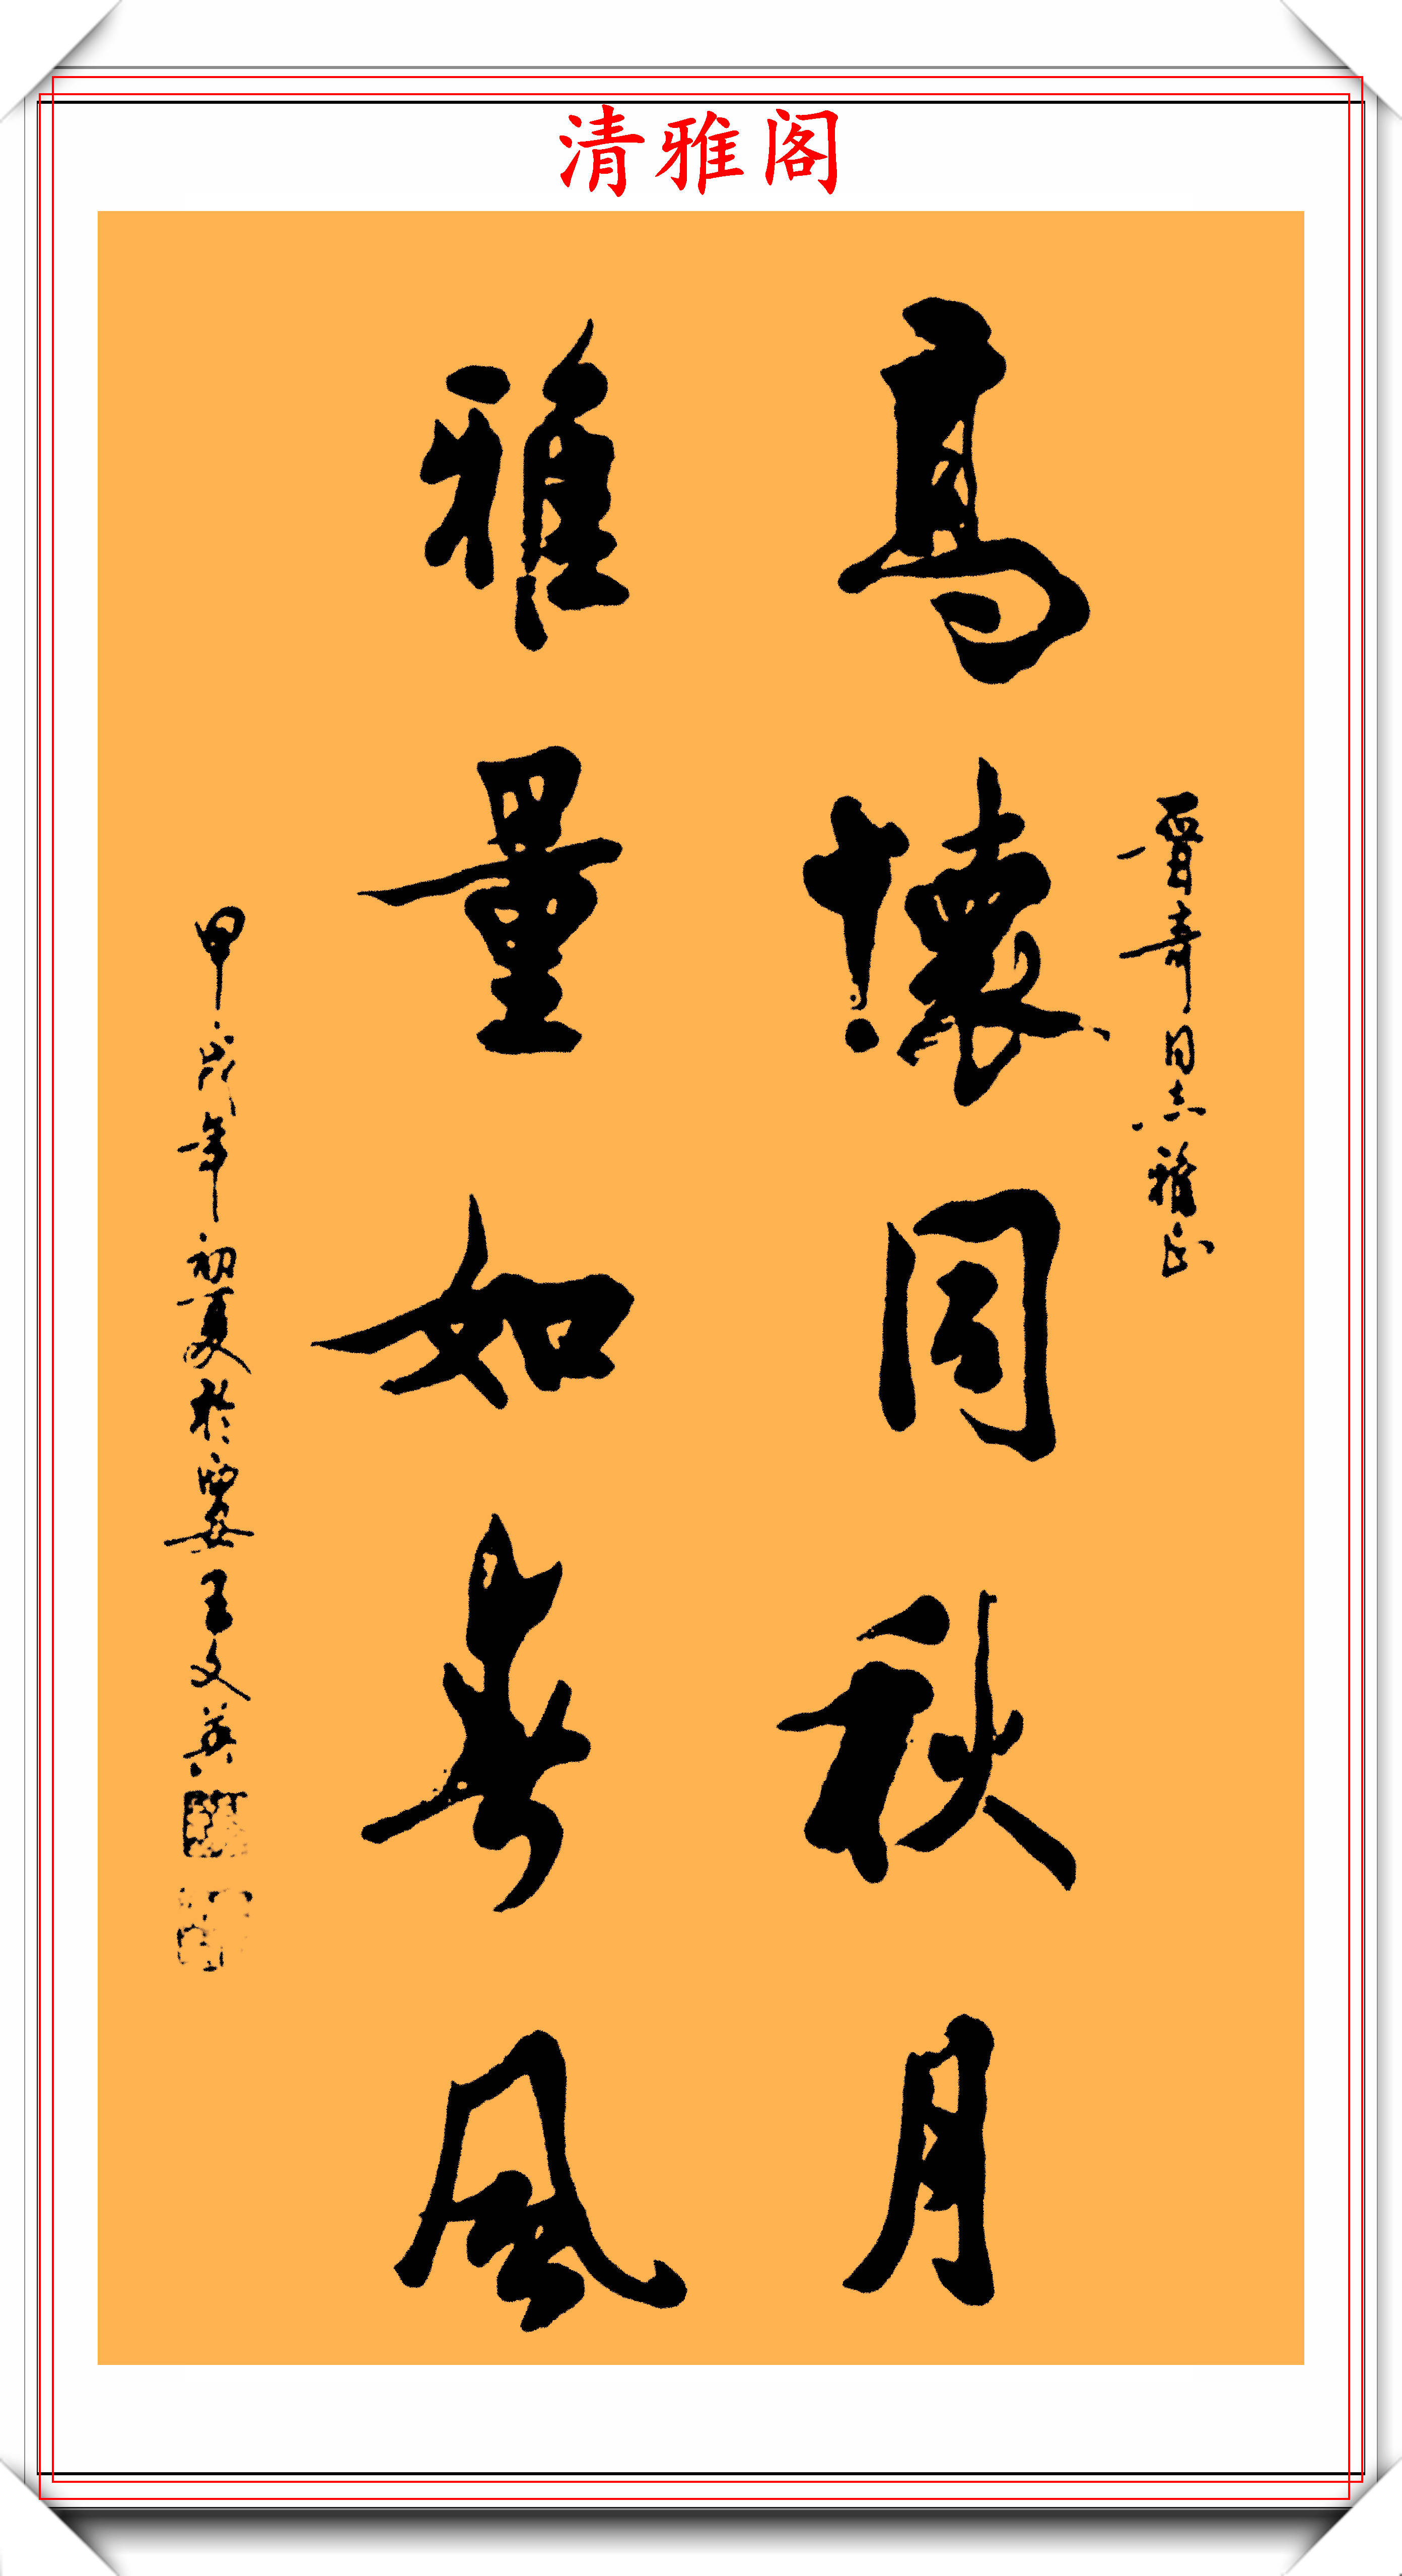 清雅阁
晋奇同志雅正
高懷同秋月
雅量如春風
甲戌年初夏於西安王文英